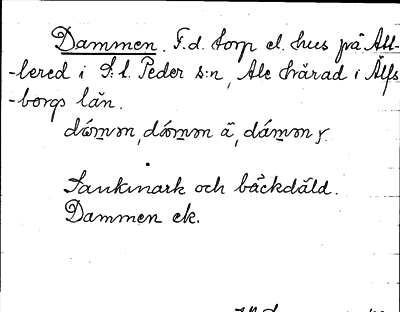 Dammen. F.d. torp el. hus på All-
-lered i S:t. Peder s:n, Ale härad i Älfs
-borgs län.
dám̥ən, dám̥ən ä, dám̥ən y.
Sankmark och bäckdäld.
Dammen ek.